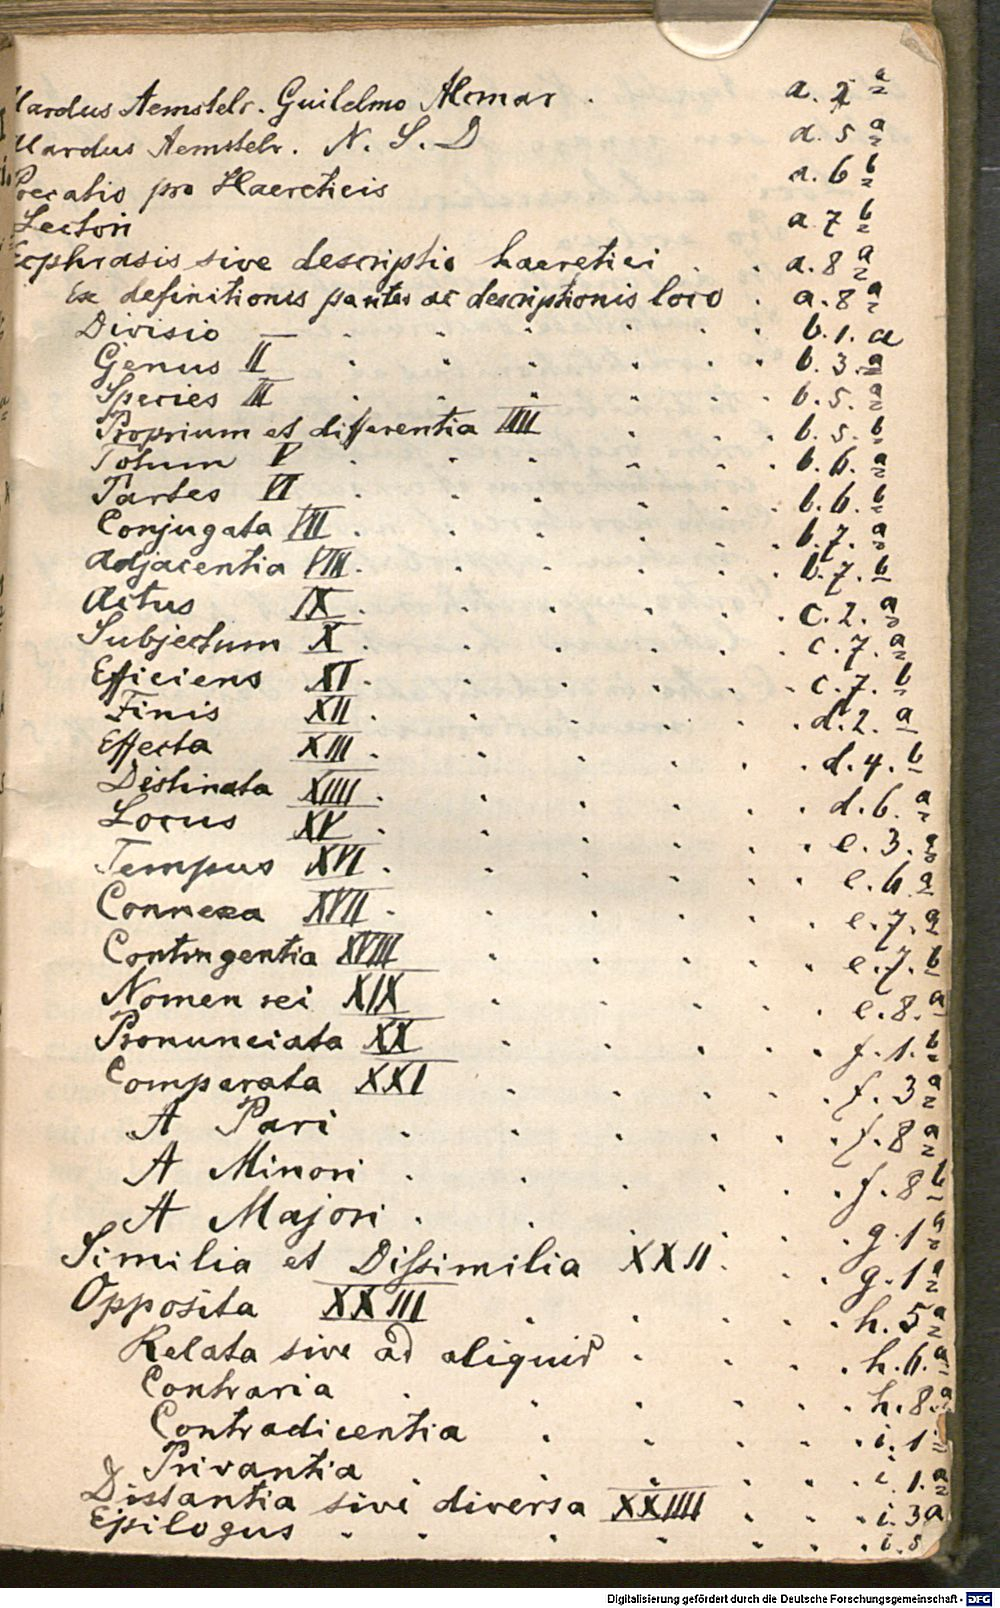 llardus Aemstelr. Guilelmo Alcmar . a. 2 a
llardus Aemstelr. N. S. D a. 5 a
Precatio pro Haereticis a. 6 b
Lectori a. 7 b
Ecphrasis sive descriptio haeretici . . a. 8 a
Ex definitionis partes ac descriptionis loco . a. 8 a
Divisio — b. 1. a
Genus II b. 3. a
Species III b. 5. a
Proprium et differentia IIII b. 5. b
Totum V b. 6. a
Partes VI b. 6. b
Conjugata VII b. 7. a
Adjacentia VIII b. 7. b
Actus IX c. 2. a
Subjectum X c. 7. a
Efficiens XI c. 7. b
Finis XII d. 2. a
Effecta XIII d. 4. b
Distinata XIIII d. 6. a
Locus XV e. 3. a
Tempus XVI e. 6 a
Connexa XVII e. 7. a
Contingentia XVIII e. 7. b
Nomen rei XIX e. 8. a
Pronunciata XX f. 1. b
Comparata XXI f. 3 a
A Pari f. 8 a
A Minori f. 8 b
A Majori g. 1 a
Similia et Dissimilia XXII g. 1 a
Opposita XXIII h. 5 a
Relata sive ad aliquid h. 6. a
Contraria h. 8. a
Contradicentia i. 1
Privantia i. 1. a
Distantia sive diversa XXIIII i. 3 a
Epilogus i. 5
Digitalisierung gefördert durch die Deutsche Forschungsgemeinschaft - DFG